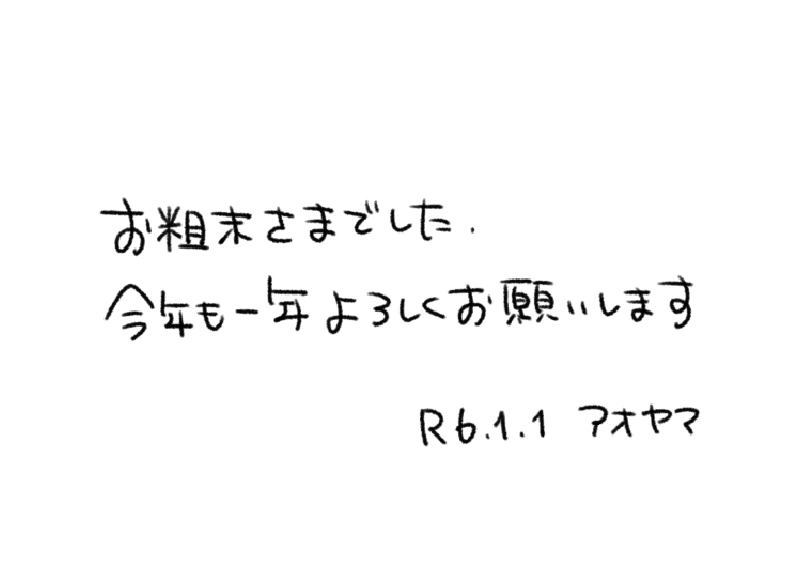 お粗末さまでした.
今年も一年よろしくお願いします
R6.1.1 アオヤマ